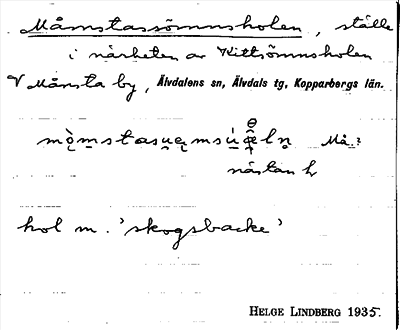 Måmstassömnsholen, ställe
i närheten av Kittsömnsholen
V Månsta by, Älvdalens sn, Älvdals tg, Kopparbergs län.
Må.:
nästan h
hol m. 'skogsbacke'
HELGE LINDBERG 1935.